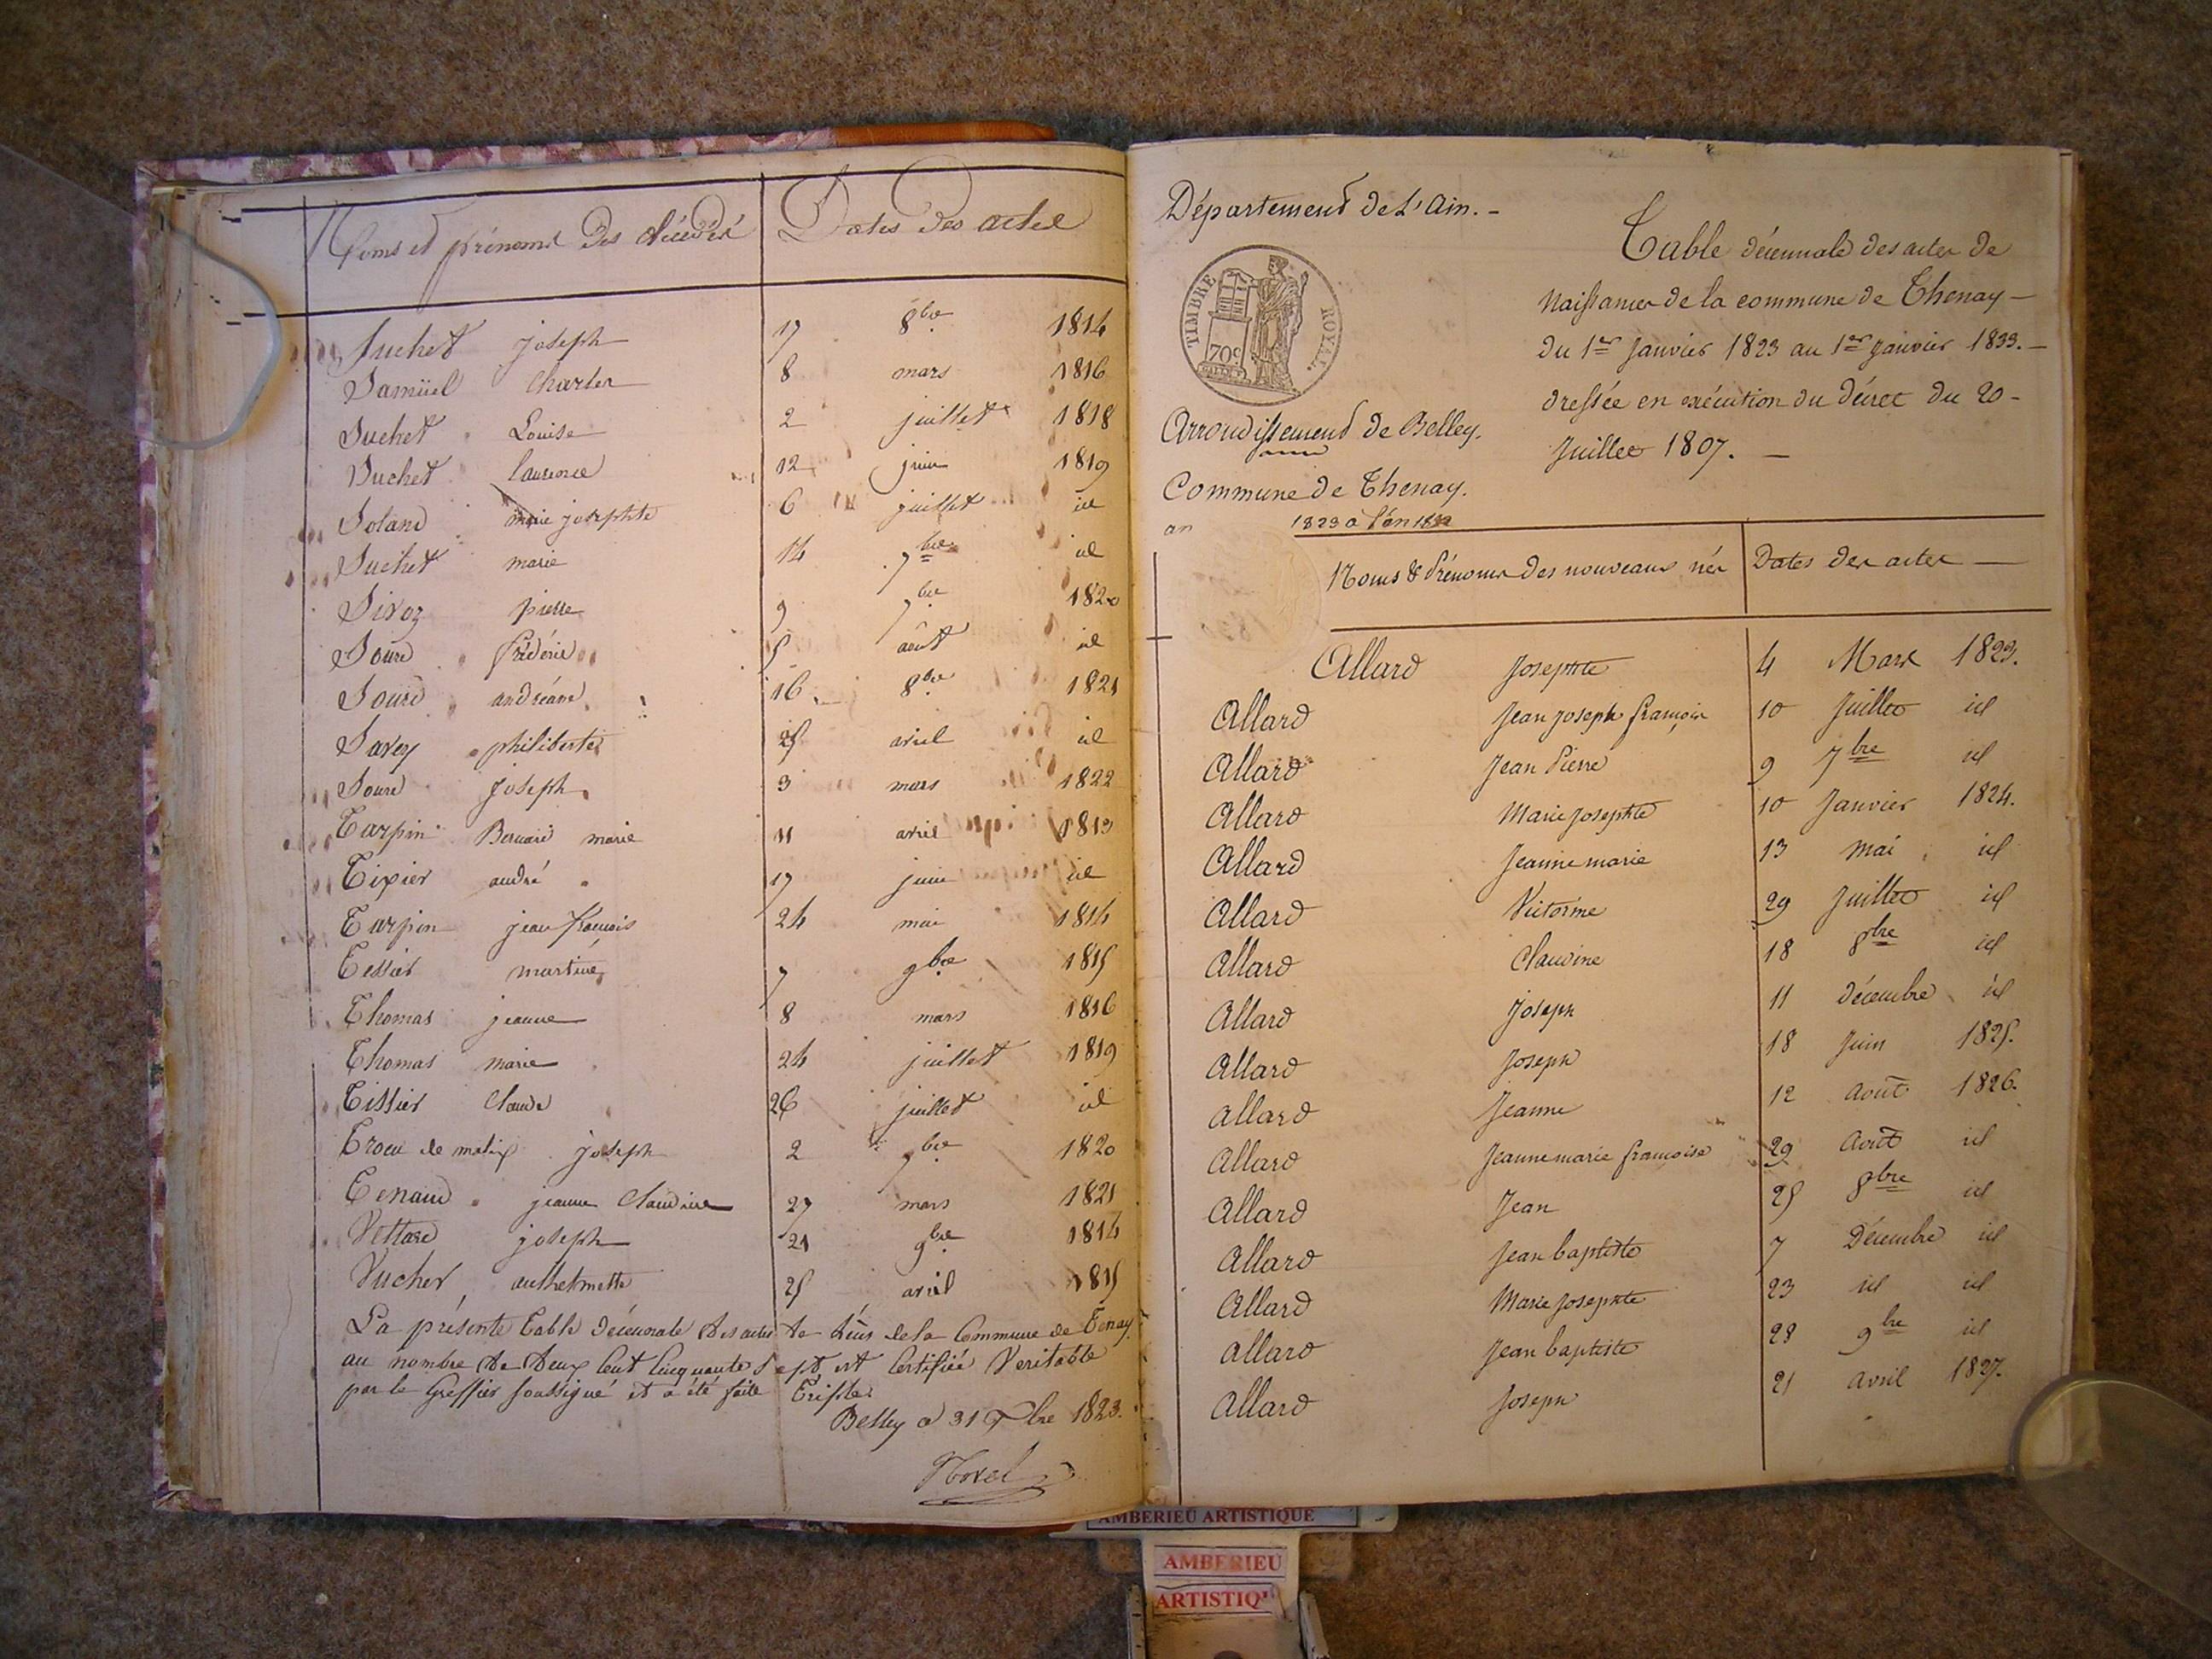 Noms et prénoms des décédés Dates des actes
Suchet joseph 17 8bre 1814
Samüel Charles 8 mars 1816
Suchet Louise 2 juillet 1818
Suchet laurence 12 juin 1819
Soland marie josephte 6 juillet id
Suchet marie 14 7bre id
Sivoz pierre 9 7bre 1820
Sourd frédéric 5 août id
Sourd andréane 16 8bre 1821
Savey philiberte 25 avril id
Sourd joseph 3 mars 1822
Tarpin Bernard marie 11 avril 1813
Tixier andré 17 juin id
Turpin jean francois 24 mai 1814
Tessier martine 7 9bre 1815
Thomas jeanne 8 mars 1816
Thomas marie 24 juillet 1819
Tissier Claude 26 juillet id
joseph 2 7bre 1820
Tenand jeanne Claudine 27 mars 1821
Vettard joseph 21 9bre 1814
Vucher anthelmette 25 avril 1815
La présente Table Décennale des actes de Décès de la Commune de Tenay
au nombre de deux Cent Cinquante Sept est Certifiée Veritable
par le Greffier soussigné et a été faite Triple
Belley a 31 Xbre 1823.
Morel
Département de L'Ain.
TIMBRE ROYAL.
70c
Arrondissement de Belley.
Commune de Thenay.
an 1823 a l'an 1832
Table décennale des actes de
Naissances de la commune de Thenay
Du 1er Janvier 1823 au 1er Janvier 1833.
dressée en exécution du décret du 20
Juillet 1807.
Noms & Prénoms des nouveaux nés Dates des actes
Allard Josephte 4 Mars 1823.
Allard Jean joseph françois 10 Juillet id
Allard Jean Pierre 9 7bre id
Allard Marie Josephte 10 Janvier 1824.
Allard Jeanne marie 13 mai id
Allard Victorine 29 Juillet id
Allard Claudine 18 8bre id
Allard Joseph 11 décembre id
Allard Joseph 18 Juin 1825.
Allard Jeanne 12 Août 1826.
Allard Jeanne marie françoise 29 Août id
Allard Jean 25 8bre id
Allard Jean baptiste 7 Décembre id
Allard Marie Josephte 23 id id
Allard Jean baptiste 28 9bre id
Allard Joseph 21 avril 1827.
AMBERIEU ARTISTIQUE
AMBERIEU
ARTISTIQU